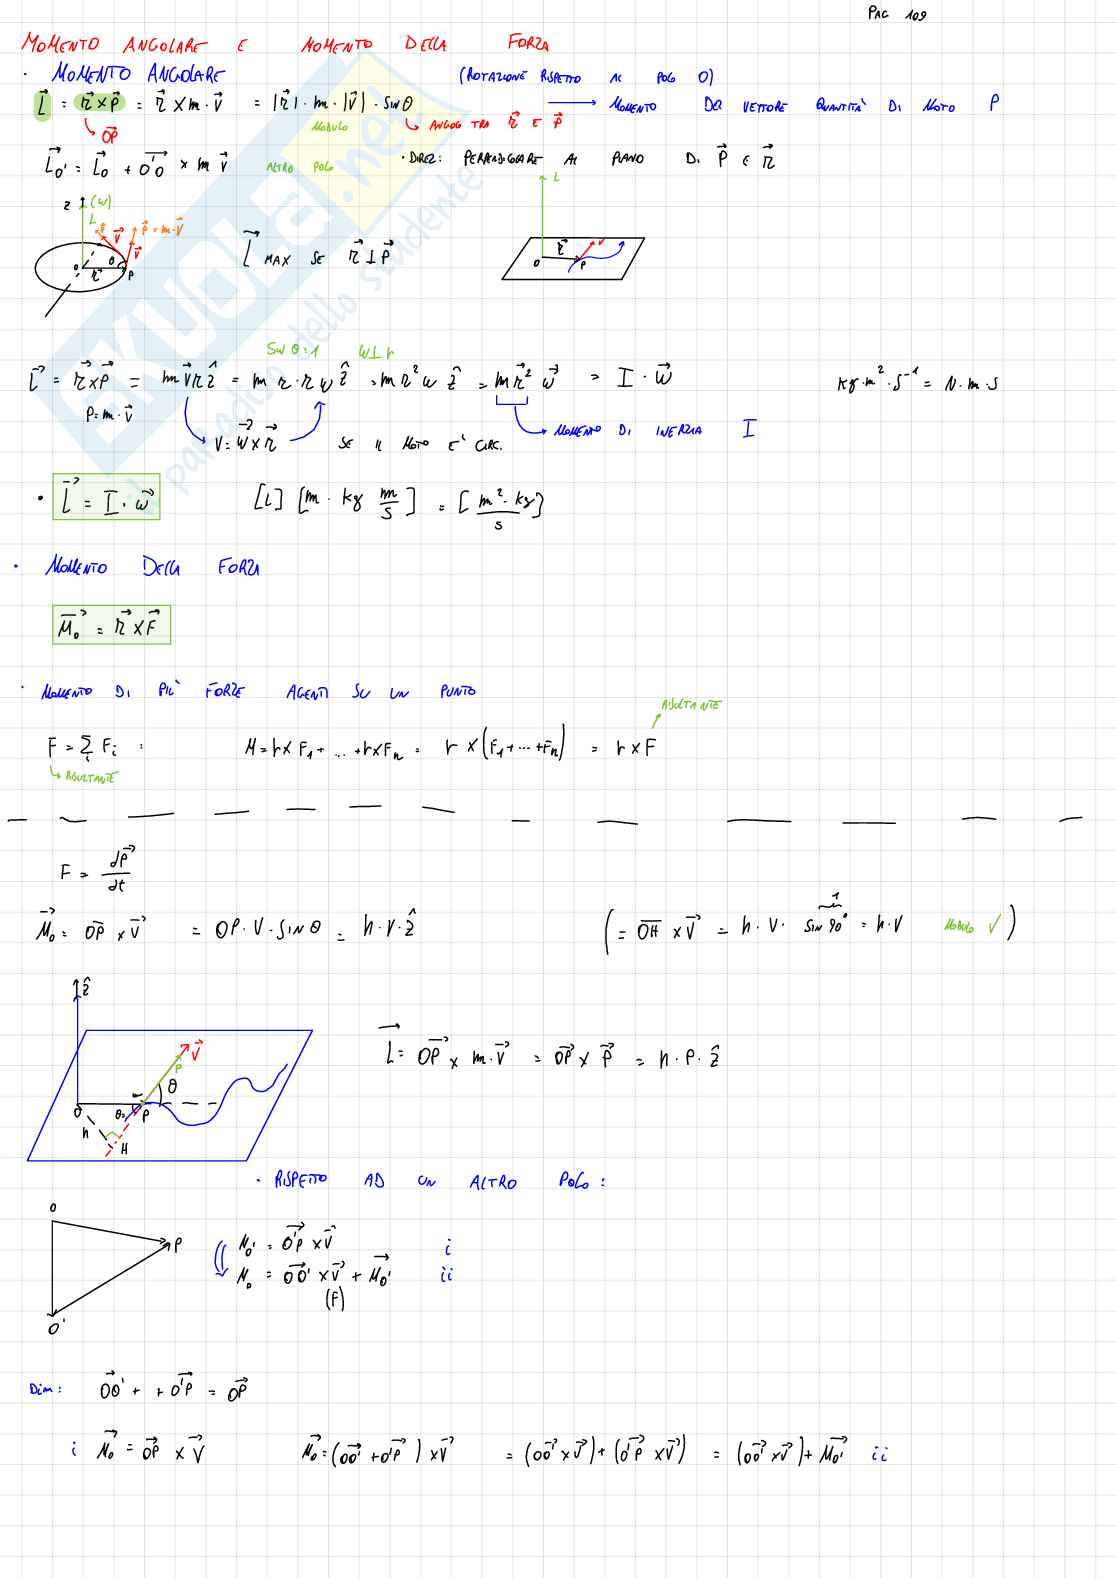 PAG 109
MOMENTO ANGOLARE E MOMENTO DELLA FORZA
· MOMENTO ANGOLARE (ROTAZIONE RISPETTO AL POLO O)
L⃗ = r⃗ × p⃗ = r⃗ × m · v⃗ = |r⃗| · m · |v⃗| · sin θ → MOMENTO DEL VETTORE QUANTITÀ DI MOTO P
OP⃗ MODULO ANGOLO TRA r⃗ E p⃗
L⃗o' = L⃗o + O'O⃗ × m v⃗ ALTRO POLO · DIREZ: PERPENDICOLARE AL PIANO DI p⃗ E r⃗
z (w) L
v⃗ p⃗ = m·v⃗ v⃗
O r⃗ θ P
L⃗ MAX SE r⃗ ⊥ p⃗
L r⃗ v O P
sin θ = 1 w ⊥ r
L⃗ = r⃗ × p⃗ = m v⃗ r ẑ = m r · r w ẑ = m r² w ẑ = m r⃗² w⃗ = I · w⃗ kg · m² · s⁻¹ = N · m · s
p = m · v⃗
v = w⃗ × r⃗ SE IL MOTO E' CIRC. MOMENTO DI INERZIA I
· L⃗ = I · w⃗ [L] [m · kg m/s] = [m² · kg/s]
· MOMENTO DELLA FORZA
M⃗o = r⃗ × F⃗
· MOMENTO DI PIÙ FORZE AGENTI SU UN PUNTO
RISULTANTE
F = Σi Fi : M = r × F1 + ... + r × Fn = r × (F1 + ... + Fn) = r × F
RISULTANTE
F = dp⃗/dt
M⃗o = OP⃗ × v⃗ = OP · V · sin θ = h · v · ẑ ( = OH × v⃗ = h · V · sin 90° = h · V MODULO V )
1
ẑ
v⃗ P θ
O θ P h H
L⃗ = OP⃗ × m · v⃗ = OP⃗ × p⃗ = h · p · ẑ
· RISPETTO AD UN ALTRO POLO :
O P O'
Mo' = O'P⃗ × v⃗ i
Mo = OO'⃗ × v⃗ + M⃗o' ii
(F)
Dim: OO'⃗ + + O'P⃗ = OP⃗
i M⃗o = OP⃗ × v⃗ M⃗o = (OO'⃗ + O'P⃗) × v⃗ = (OO'⃗ × v⃗) + (O'P⃗ × v⃗) = (OO'⃗ × v⃗) + M⃗o' ii
SKUOLA.net
il paradiso dello studente